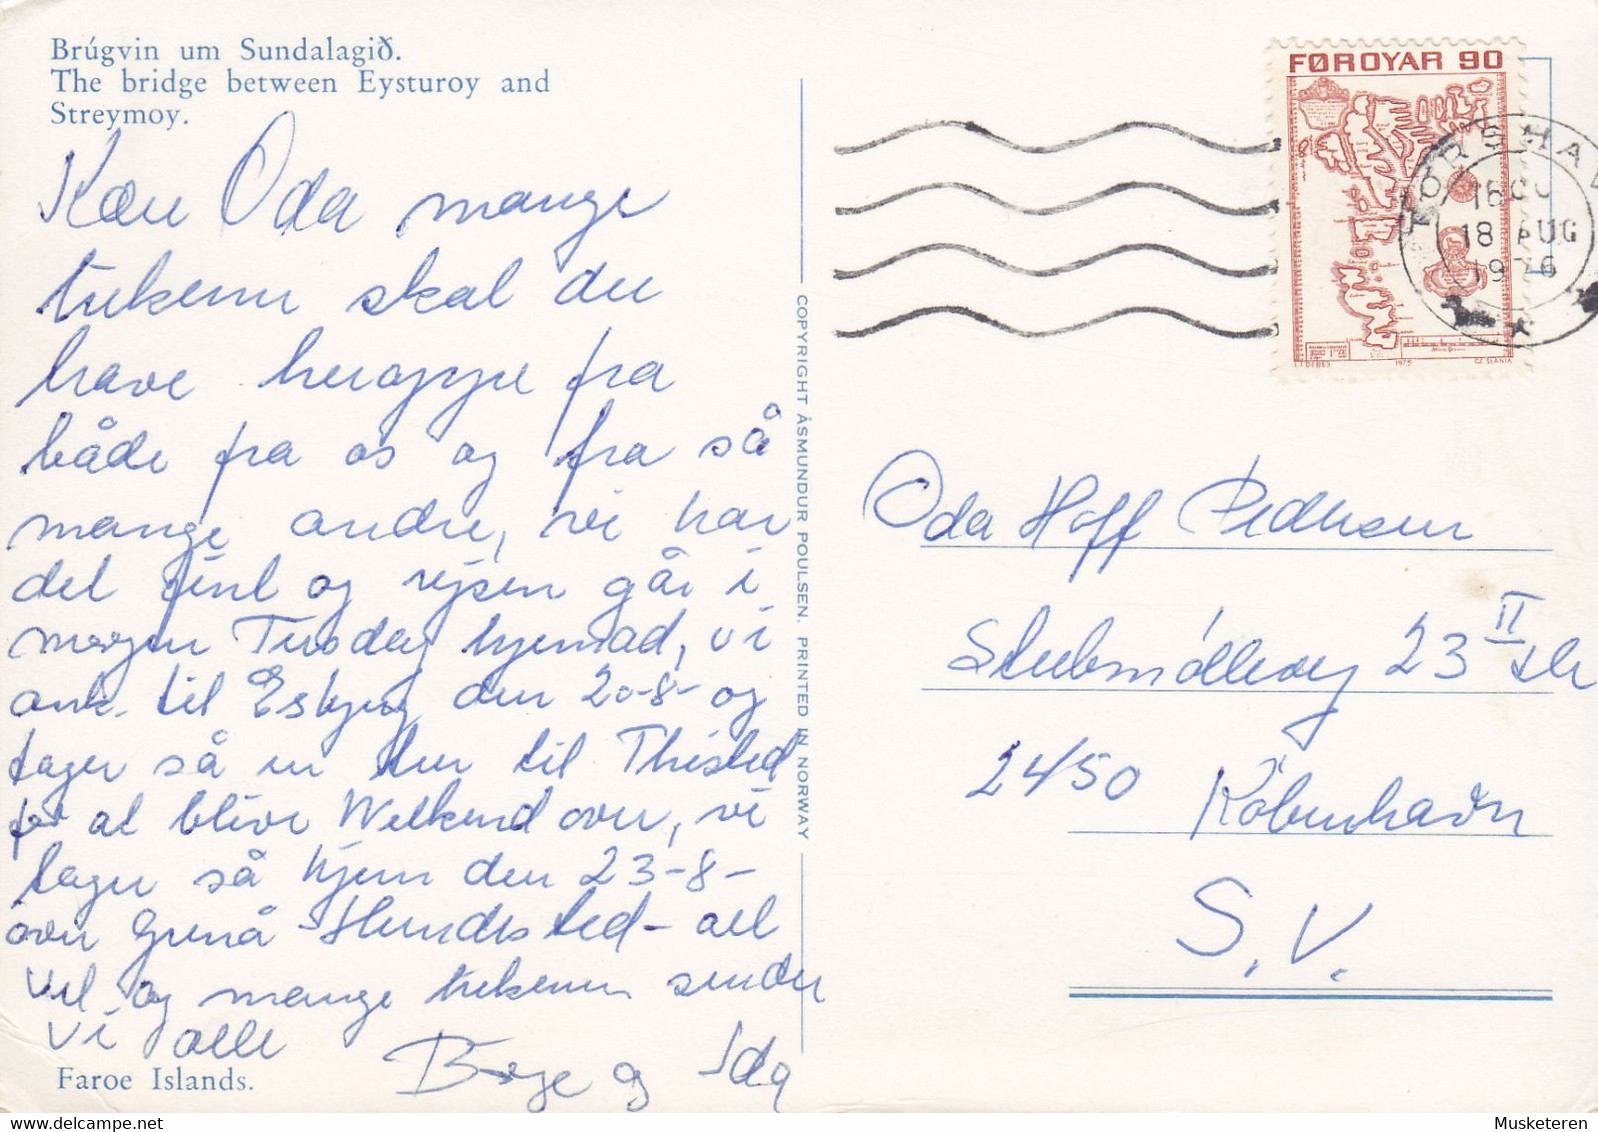 Brúgvin um Sundalagið.
The bridge between Eysturoy and
Streymoy.
Kære Oda mange
hilsener skal du
have heroppe fra
både fra os og fra så
mange andre, vi har
det fint og rejsen går i
morgen Tirsdag hjemad, vi
ank. til Esbjerg den 20-8- og
tager så en tur til Thisted
for at blive Weekend over, vi
tager så hjem den 23-8-
over Grenå - Hundested - alt
vel og mange hilsener sender
vi alle
Børge og Ida
Faroe Islands.
COPYRIGHT ÁSMUNDUR POULSEN. PRINTED IN NORWAY
FØROYAR 90
1975
CZ SLANIA
TÓRSHAV
18 AUG
1976
Oda Hoff Pedersen
Stubmøllevej 23 II
2450 København
S.V.
Musketeren